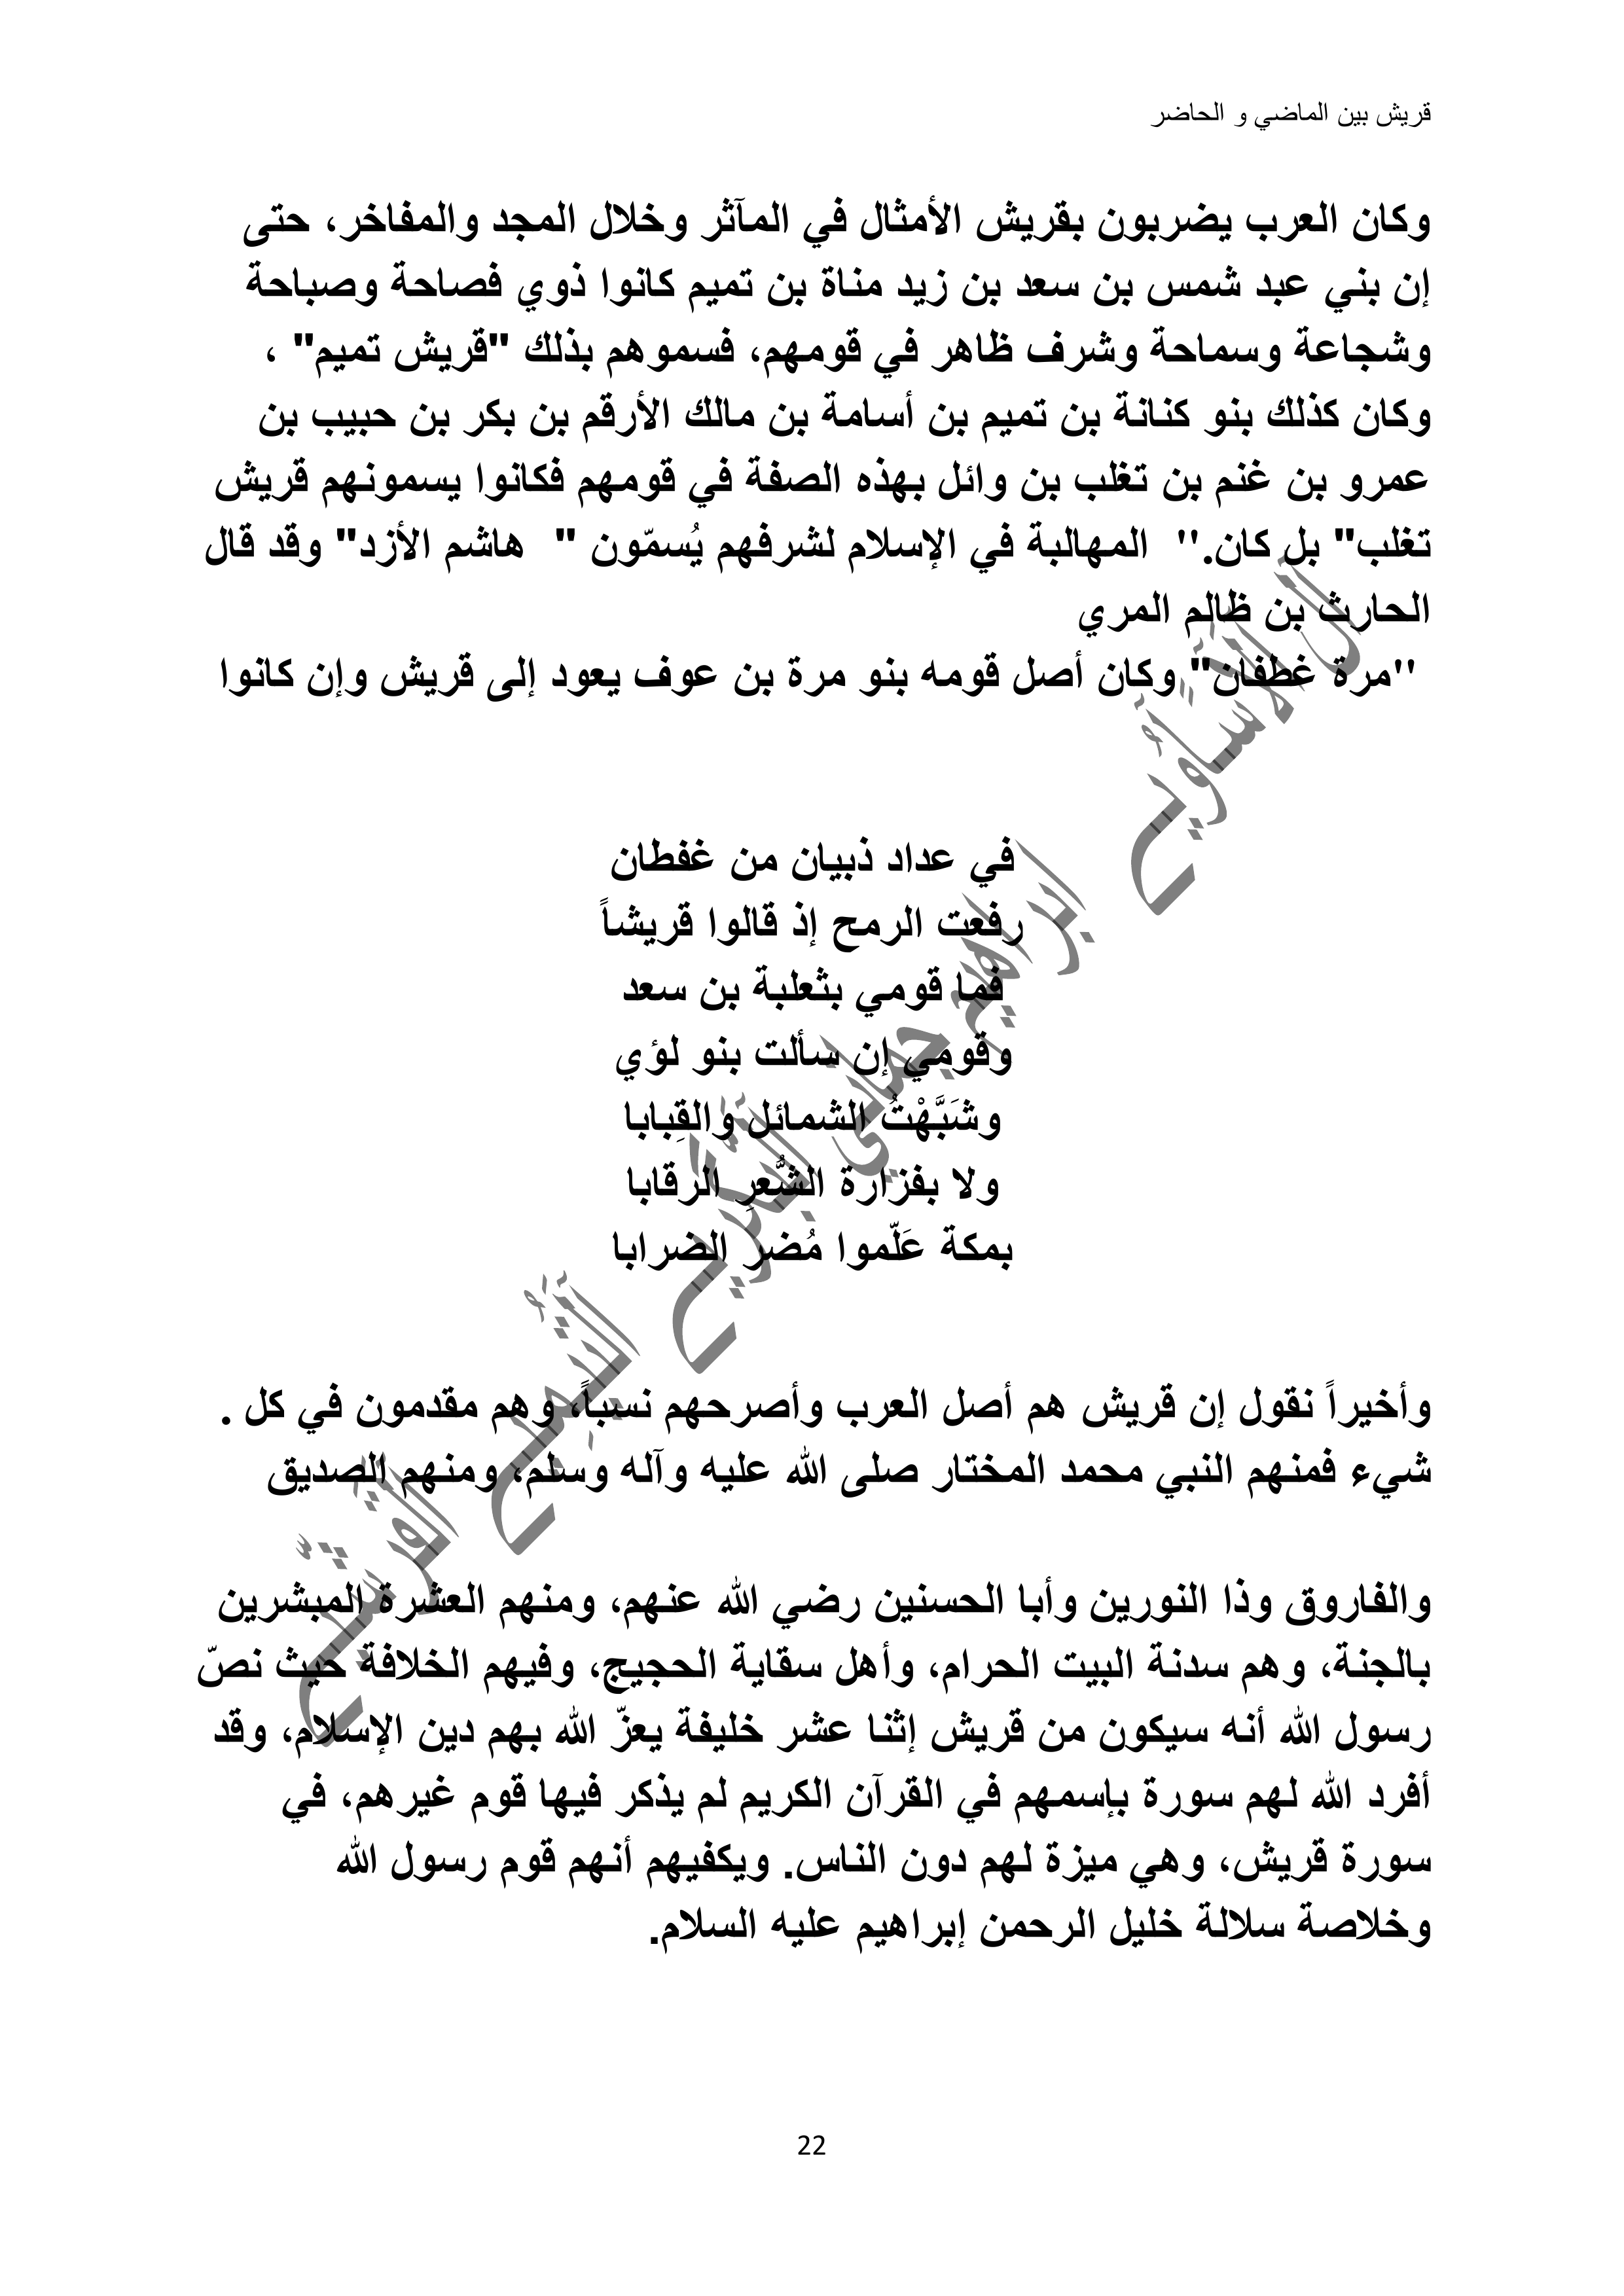 قريش بين الماضي و الحاضر
وكان العرب يضربون بقريش الأمثال في المآثر وخلال المجد والمفاخر، حتى
إن بني عبد شمس بن سعد بن زيد مناة بن تميم كانوا ذوي فصاحة وصباحة
وشجاعة وسماحة وشرف ظاهر في قومهم، فسموهم بذلك "قريش تميم" ،
وكان كذلك بنو كنانة بن تميم بن أسامة بن مالك الأرقم بن بكر بن حبيب بن
عمرو بن غنم بن تغلب بن وائل بهذه الصفة في قومهم فكانوا يسمونهم قريش
تغلب" بل كان.'' المهالبة في الإسلام لشرفهم يُسمّون " هاشم الأزد" وقد قال
الحارث بن ظالم المري
''مرة غطفان" وكان أصل قومه بنو مرة بن عوف يعود إلى قريش وإن كانوا
في عداد ذبيان من غفطان
رفعت الرمح إذ قالوا قريشاً
فما قومي بثعلبة بن سعد
وقومي إن سألت بنو لؤي
وشَبَّهْتُ الشمائل والقِبابا
ولا بفزارة الشُّعرِ الرقابا
بمكة عَلّموا مُضر الضرابا
وأخيراً نقول إن قريش هم أصل العرب وأصرحهم نسباً، وهم مقدمون في كل .
شيء فمنهم النبي محمد المختار صلى الله عليه وآله وسلم، ومنهم الصديق
والفاروق وذا النورين وأبا الحسنين رضي الله عنهم، ومنهم العشرة المبشرين
بالجنة، وهم سدنة البيت الحرام، وأهل سقاية الحجيج، وفيهم الخلافة حيث نصّ
رسول الله أنه سيكون من قريش إثنا عشر خليفة يعزّ الله بهم دين الإسلام، وقد
أفرد الله لهم سورة بإسمهم في القرآن الكريم لم يذكر فيها قوم غيرهم، في
سورة قريش، وهي ميزة لهم دون الناس. ويكفيهم أنهم قوم رسول الله
وخلاصة سلالة خليل الرحمن إبراهيم عليه السلام.
22